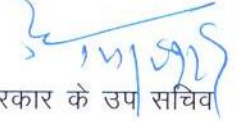 रकार के उप सचिव